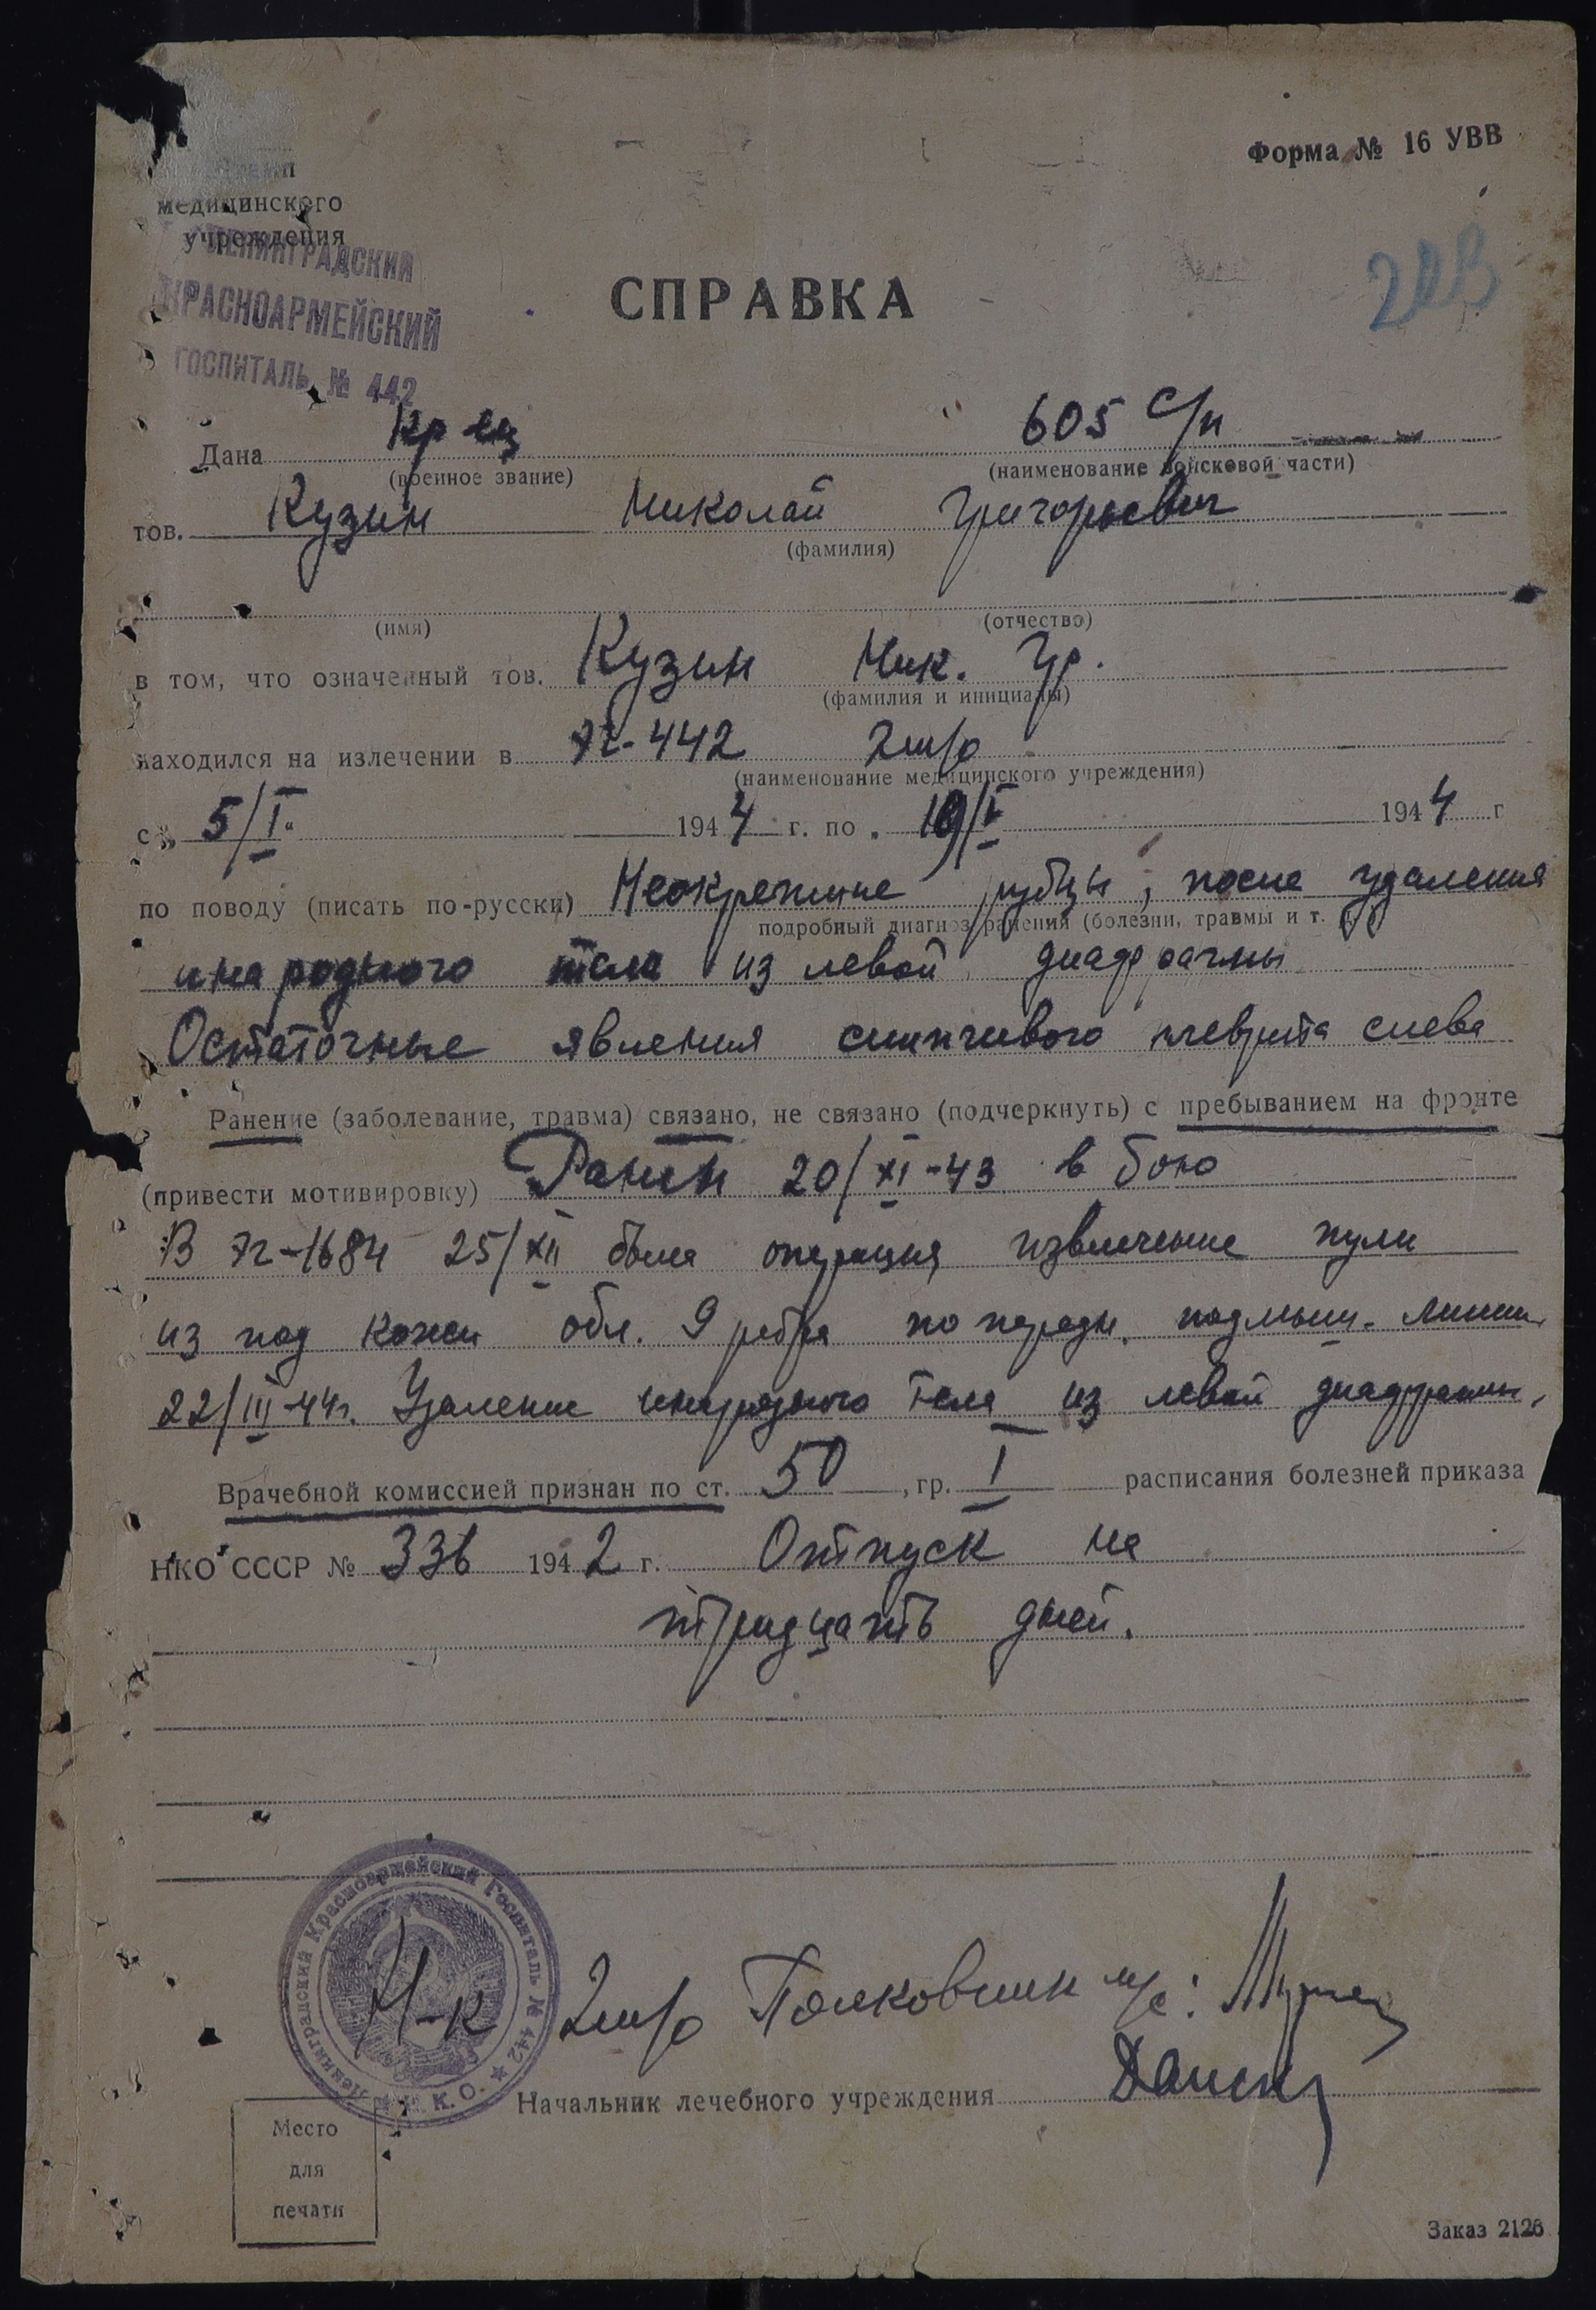 Форма № 16 УВВ
медицинского
учреждения
ЛЕНИНГРАДСКИЙ
КРАСНОАРМЕЙСКИЙ
ГОСПИТАЛЬ № 442
СПРАВКА
Дана Кр-ец 605 с/п
(военное звание) (наименование войсковой части)
тов. Кузин Николай Григорьевич
(фамилия)
(имя) (отчество)
в том, что означенный тов. Кузин Ник. Гр.
(фамилия и инициалы)
находился на излечении в ЭГ-442 2 м/о
(наименование медицинского учреждения)
с „ 5/I. 1944 г. по „ 194 4 г
по поводу (писать по-русски) Неокрепшие рубцы, после удаления
подробный диагноз ранения (болезни, травмы и т.
инародного тела из левой диафрагмы
Остаточные явления слипчивого плеврита слева
Ранение (заболевание, травма) связано, не связано (подчеркнуть) с пребыванием на фронте
(привести мотивировку) Ранен 20/XI-43 в бою
В ЭГ-1684 25/XII была операция извлечение пули
из под кожи обл. 9 ребра по передн. подмыш. линии
22/III-44г. Удаление инародного тела из левой диафрагмы,
Врачебной комиссией признан по ст. 50, гр. I расписания болезней приказа
НКО СССР № 336 1942 г. Отпуск на
тридцать дней.
Ленинградский Красноармейский Госпиталь № 442 ★ Н. К. О.
Н-к 2 м/о Полковник м/с:
Начальник лечебного учреждения
Место
для
печати
Заказ 2126